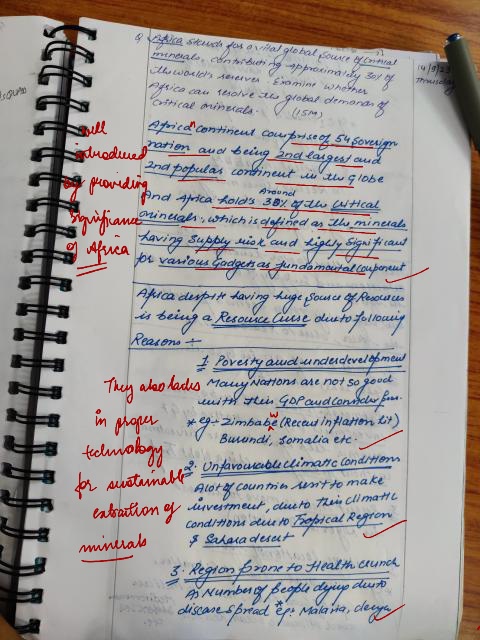 Q Africa stands for a vital global source of Critical
minerals, contributing approximately 30% of
the world's reserves. Examine whether
Africa can resolve the global demands of
Critical minerals. (15M)
14/9/23
Thursday
Africa continent comprise of 54 Sovereign
nation and being 2nd largest and
2nd populous continent in the Globe
Around
And Africa holds 30% of the Critical
minerals, which is defined as the minerals
having supply risk and highly significant
for various Gadgets as fundamental component
well
introduced
by providing
significance
of Africa
Africa despite having huge source of Resources
is being a Resource Curse due to following
Reasons :-
1. Poverty and underdevelopment
Many Nations are not so good
with their GDP and
* eg:- Zimbabwe (Recent inflation hit)
Burundi, Somalia etc.
They also lacks
in proper
technology
for sustainable
extraction of
minerals
2. Unfavourable climatic Conditions
A lot of countries to make
investment, due to their climatic
conditions due to Tropical Region
& Sahara desert
3. Region prone to Health crunch
As Number of people dying due to
disease spread eg: Malaria, dengue